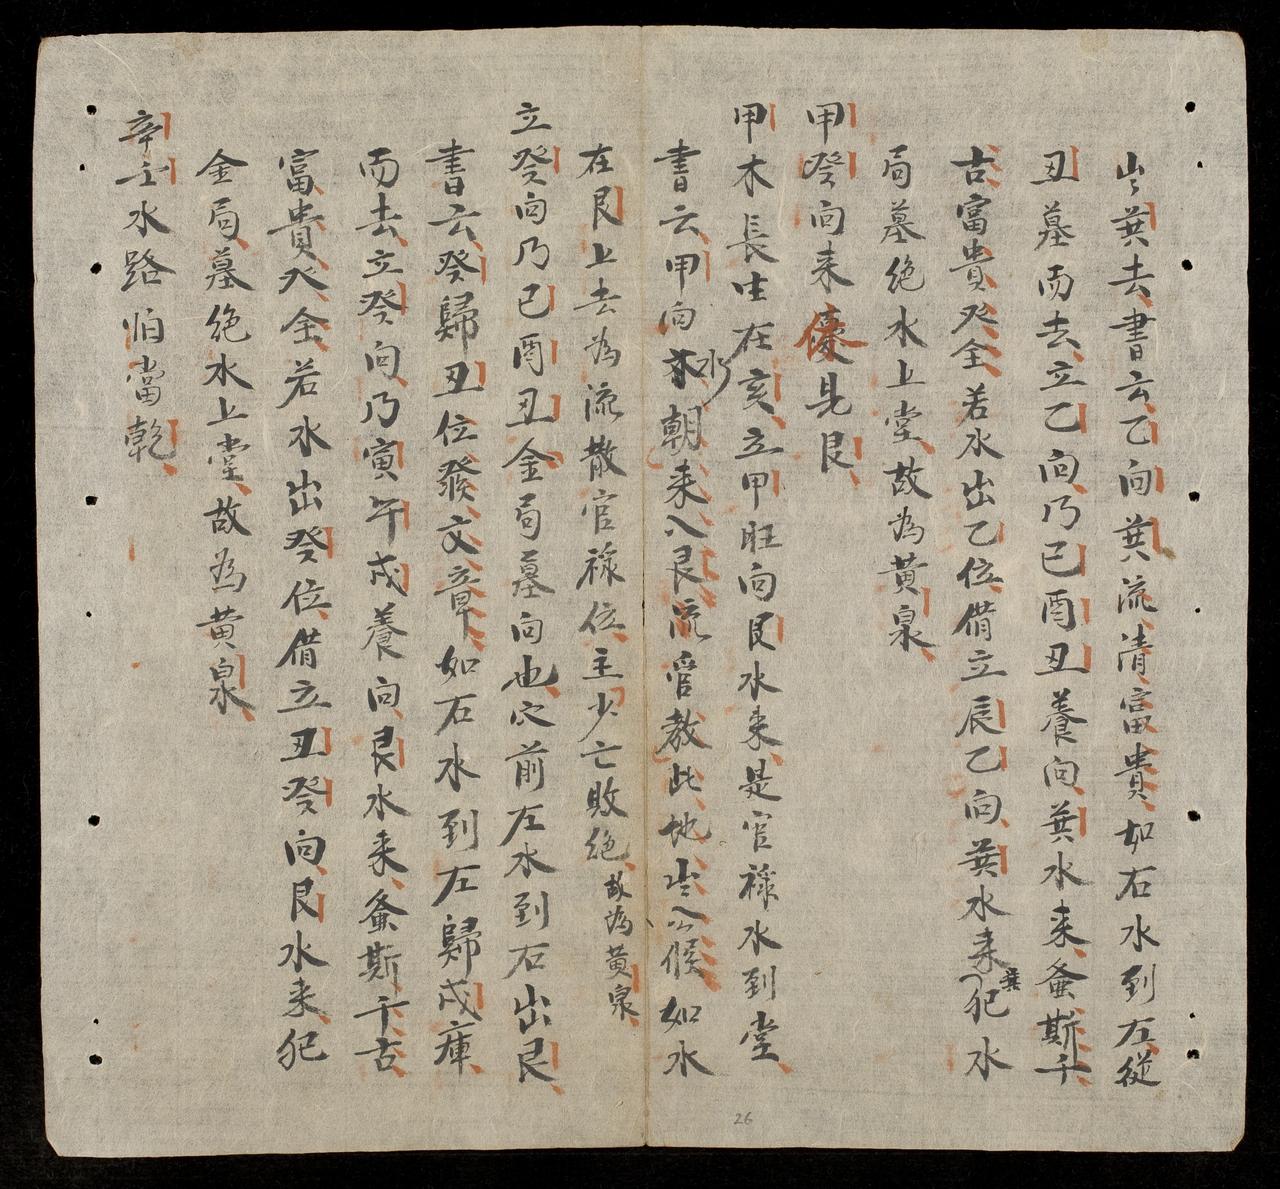 出巽去書云乙向巽流清富貴如石水到左從
丑墓而去立乙向乃巳酉丑養向巽水来螽斯千
古富貴双全若水出乙位借立辰乙向巽水来犯巽水
局墓绝水上堂故為黄泉
甲癸向来優見艮
甲木長生在亥立甲旺向艮水来是官禄水到堂
書云甲向水朝来入艮流管教此地出公候如水
在艮上去為流散官禄位主少亡敗绝故為黄泉
立癸向乃巳酉丑金局墓向也穴前左水到石出艮
書云癸歸丑位發文章如石水到左歸戍庫
而去立癸向乃寅午戍養向艮水来螽斯千古
富貴双全若水出癸位借立丑癸向艮水来犯
金局墓绝水上堂故為黄泉
辛壬水路怕當乾
26